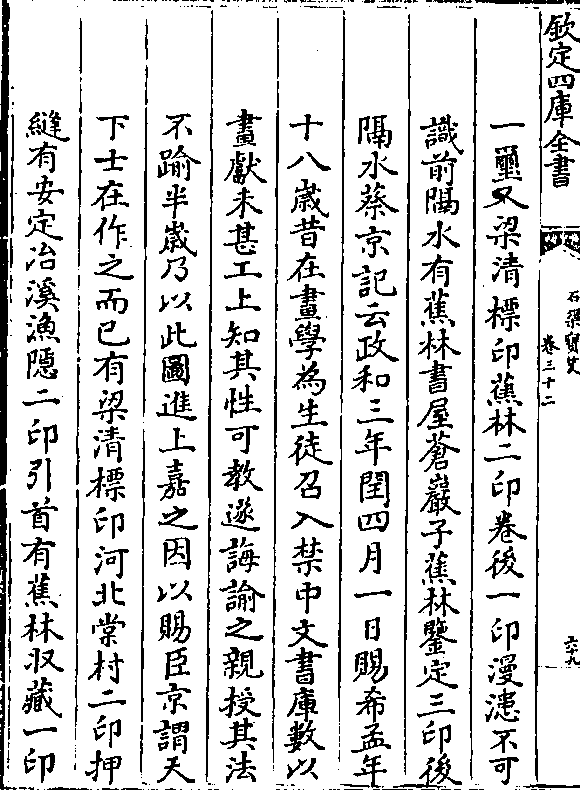 欽定四庫全書
石渠寶笈
卷三十二
六十九
一璽又梁清標印蕉林二印卷後一印漫漶不可
識前隔水有蕉林書屋蒼巖子蕉林鑒定三印後
隔水蔡京記云政和三年閏四月一日賜希孟年
十八歲昔在畫學為生徒召入禁中文書庫數以
畫獻未甚工上知其性可教遂誨諭之親授其法
不踰半歲乃以此圖進上嘉之因以賜臣京謂天
下士在作之而已有梁清標印河北棠村二印押
縫有安定冶溪漁隱二印引首有蕉林収藏一印